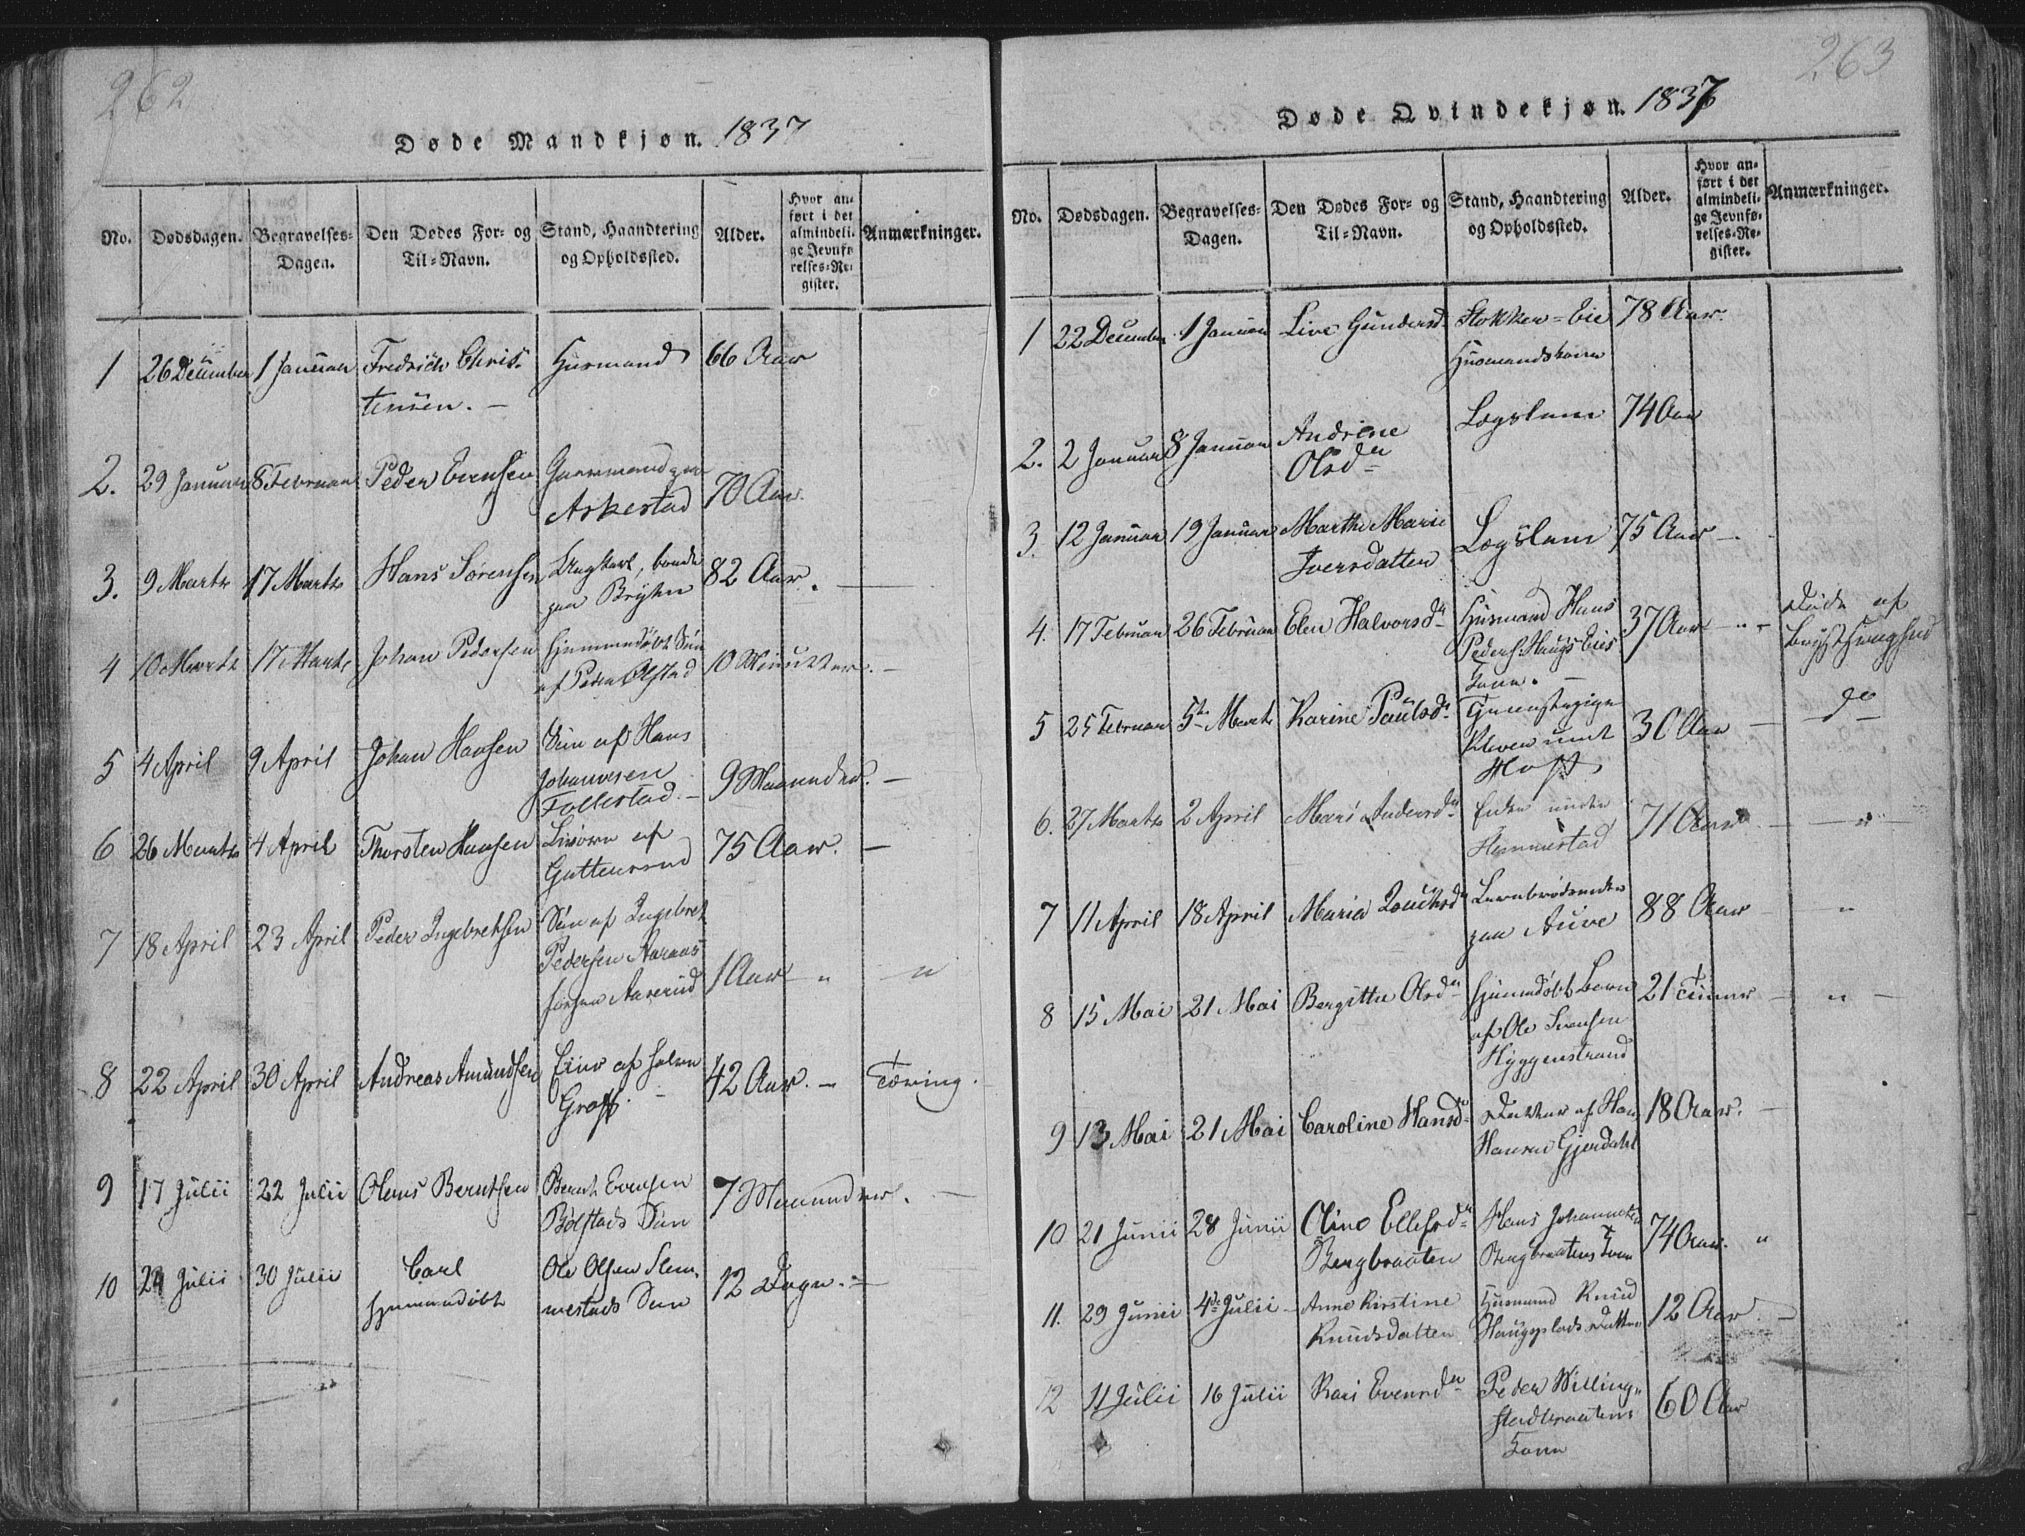 262
Døde Mandkjøn. 1837
No.
Dødsdagen.
Begravelses-
Dagen.
Den Dødes For- og
Til-Navn.
Stand, Haandtering
og Opholdssted.
Alder.
Hvor an-
ført i det
almindeli-
ge Jevnfø-
relses-Re-
gister.
Anmærkninger.
1 26 December 1 Januar Fredrich Chris- Husmand 66 Aar
tensen. –
2. 29 Januar 8 Februar Peder Evensen Gaarmand paa 70 Aar.
Askestad
3. 9 Marts 17 Marts Hans Sørensen 82 Aar. –
paa Bryhn
4 10 Marts 17 Marts Johan Pedersen Hjemmedøbt Søn 10 Minutter. –
af Peder Ølstad
5 4 April 9 April Johan Hansen Søn af Hans 9 Maaneder. –
Johannesen
Follestad. –
6 26 Marts 4 April Thorsten Hansen af 75 Aar. –
7 18 April 23 April Peder Ingebretsen Søn af Ingebret 1 Aar – " "
Pedersen
Aaserud
8 22 April 30 April Andreas Amundsen 42 Aar. – Tæring.
Graff. –
9 17 Julii 22 Julii Olaus Berntsen Bernt Evensen 7 Maaneder. –
Bølstads Søn
10 24 Julii 30 Julii Carl Ole Olsen Slem- 12 Dage. –
hjemmedøbt mestads Søn
263
Døde Qvindekjøn. 1837
No.
Dødsdagen.
Begravelses-
Dagen.
Den Dødes For- og
Til-Navn.
Stand, Haandtering
og Opholdssted.
Alder.
Hvor an-
ført i det
almindeli-
ge Jevnfø-
relses-Re-
gister.
Anmærkninger.
1 22 December 1 Januar Live Gundersd. Stokker-Eie 78 Aar.
Husmandskone
2. 2 Januar 8 Januar Andrine Lægslem 74 Aar
Olsdr
3. 12 Januar 19 Januar Marthe Marie Lægslem 75 Aar –
Iversdatter
4. 17 Februar 26 Februar Elen Halvorsdr Husmand Hans 37 Aar – " – Døde af
Peders. Haugs Eies Brystsvaghed
Kone. –
5 25 Februar 5te Marts Karine Paulsdr 30 Aar – do
Kleven unt
Hoff
6. 27 Marts 2 April Mari Andersdr Enke under 71 Aar – " –
Slemmestad
7 11 April 18 April Maria 88 Aar – "
paa Auve
8 15 Mai 21 Mai Bergitte Olsdr Hjemdøbt Barn 21 Timer – " –
af Ole Svensen
Hyggenstrand
9 13 Mai 21 Mai Caroline Hansdr Datter af Han 18 Aar. –
Hansen Gjerdahl
10 21 Junii 28 Junii Oline Ellefsdr Hans Johannesen 74 Aar. "
Bergbraaten Bergbraatens Kone
11. 29 Junii 4de Julii – Anne Kirstine Husmand Knud 12 Aar. –
Knudsdatter Datter
12 11 Julii 16 Julii Kari Evensdr Peder Willing- 60 Aar
stadbraatens
Kone